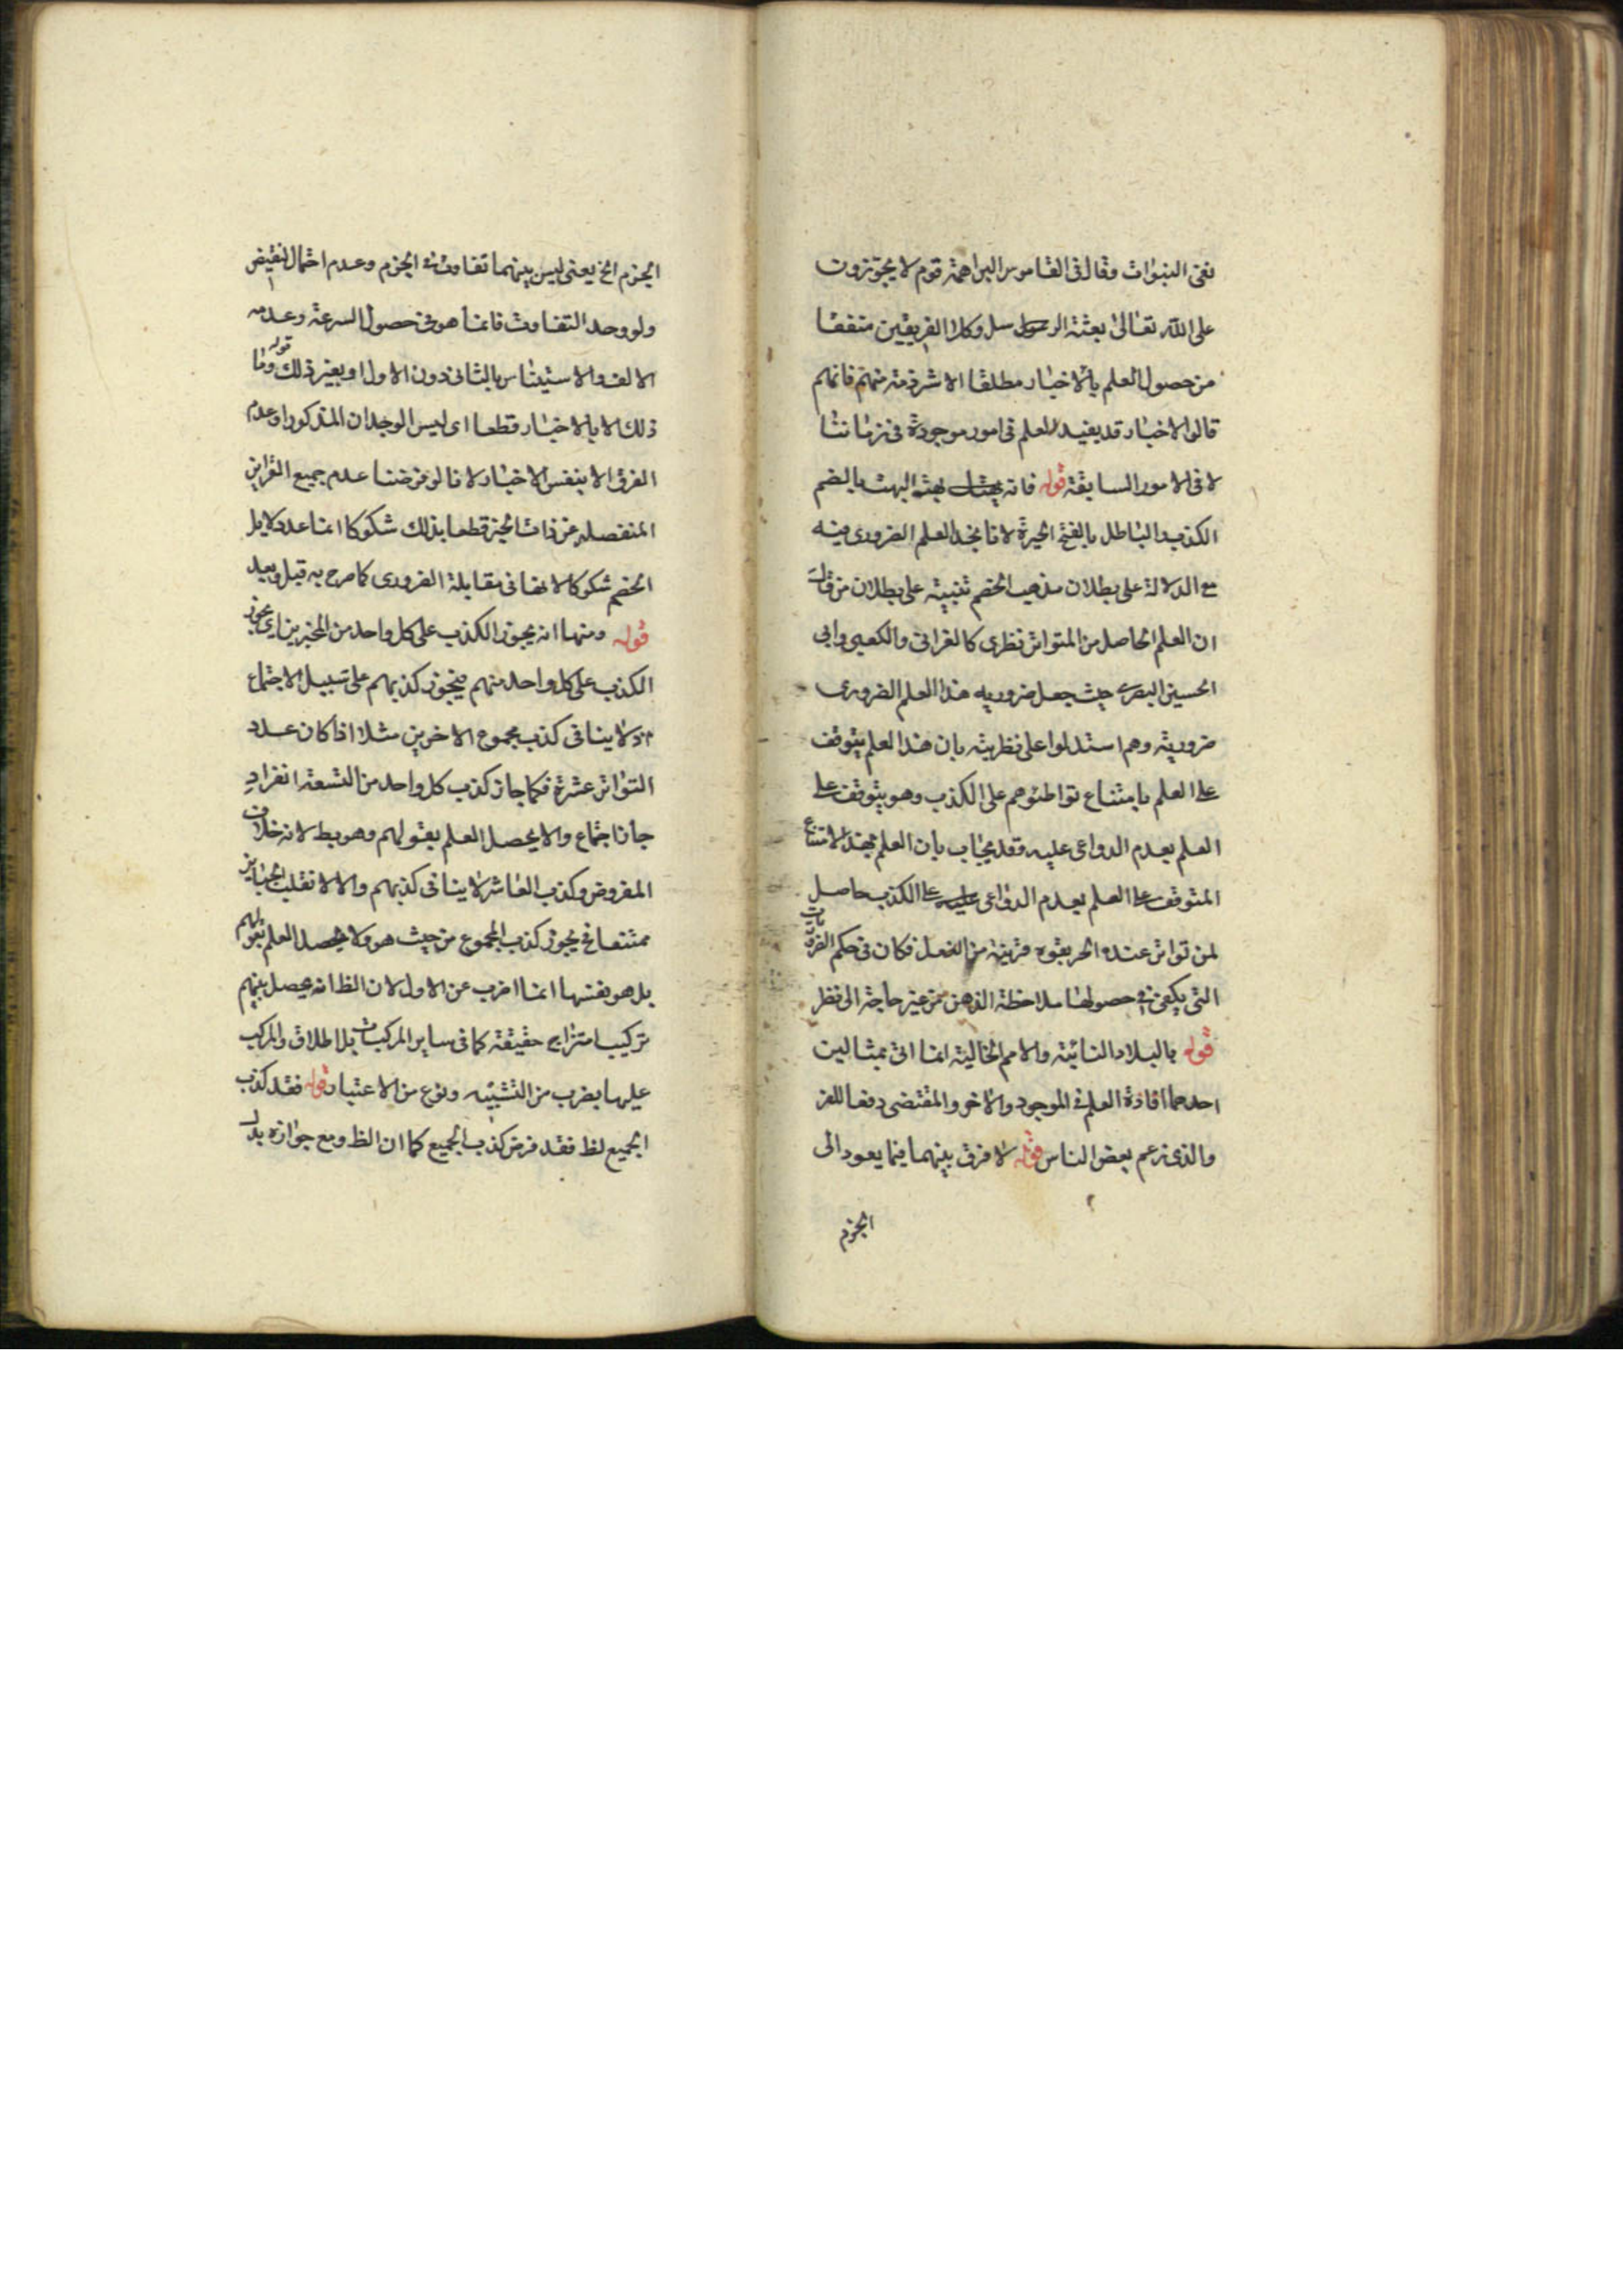 نفى النبوات وقال فى القاموس البراهمة قوم لا يجوزون
على الله تعالى بعثة الرسل وكلا الفريقين متفقا
من حصول العلم بالاخبار مطلقا الا شرذمة منهم فانهم
قالوا الاخبار قد يفيد العلم فى امور موجودة فى زماننا
لا فى الامور السابقة قوله فانه بهت البهت بالضم
الكذب والباطل بالفتح الحيرة لانا نجد العلم الضرورى فيه
مع الدلالة على بطلان مذهب الخصم تنبيه على بطلان من قال
ان العلم الحاصل من المتواتر نظرى كالغزالى والكعبى وابى
الحسين البصرى حيث جعل ضروريه هذا العلم الضرورى
ضروريته وهم استدلوا على نظريته بان هذا العلم يتوقف
على العلم بامتناع تواطئوهم على الكذب وهو يتوقف على
العلم بعدم الدواعى عليه وقد يجاب بان العلم بهذا الامتناع
المتوقف على العلم بعدم الدواعى على الكذب حاصل
لمن تواتر عنده الخبر بقوه قريبة من الفعل فكان فى حكم الضروريات
التى يكفى فى حصولها ملاحظة الذهن من غير حاجة الى نظر
قوله بالبلاد النائية والامم الخالية انما اتى بمثالين
احدهما افادة العلم فى الموجود والاخر والمقتضى دفعا للفر
والذى زعم بعض الناس قوله لا فرق بينهما فيما يعود الى
الجزم
الجزم الخ يعنى ليس بينهما تفاوت فى الجزم وعدم احتمال النقيض
ولو وجد التفاوت فانما هو فى حصول السرعة وعدمه
الالف والاستيناس بالثانى دون الاول او بغير ذلك قوله وما
ذلك الا بالاخبار قطعا اى ليس الوجدان المذكور او عدم
الفرق الا بنفس الاخبار لانا لو فرضنا عدم جميع القراين
المنفصلة عن ذات الخبر قطعا بذلك شكوكا انما عد دلايل
الخصم شكوكا لانها فى مقابلة الضرورى كما صرح به قبل وبعيد
قوله ومنها انه يجوز الكذب على كل واحد من المخبرين اى يجوز
الكذب على كل واحد منهم فيجوز كذبهم على سبيل الاجتماع
لا ينافى كذب مجموع الاخرين مثلا اذا كان عدد
التواتر عشرة فكما جاز كذب كل واحد من التسعة انفراد
جاز اجتماع والا يحصل العلم بقولهم وهو بط لانه خلاف
المفروض وكذب العاشر لا ينافى كذبهم والا لانقلب الجايز
ممتنعا فح يجوز كذب المجموع من حيث هو ولا يحصل العلم بقولهم
بل هو نفسها انما اضرب عن الاول لان الظ انه يحصل بينهم
تركيب امتزاجى حقيقة كما فى ساير المركبات بل اطلاق المركب
عليها بضرب من التشبيه ونوع من الاعتبار قوله فقد كذب
الجميع لظ فقد فرض كذب الجميع كما ان الظ ومع جوازه بدل